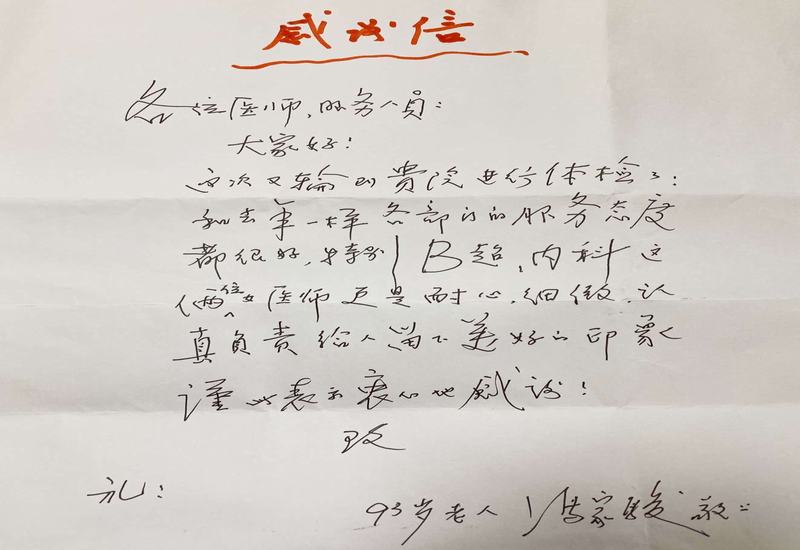 感谢信
各位医师,服务人员:
大家好!
这次又轮到贵院进行体检了:
和去年一样各部门的服务态度
都很好,特别B超、内科这
俩位女医师更是耐心、细微、认
真负责给人留下美好的印象
谨此表示衷心地感谢!
致
礼:
93岁老人 家骏 敬